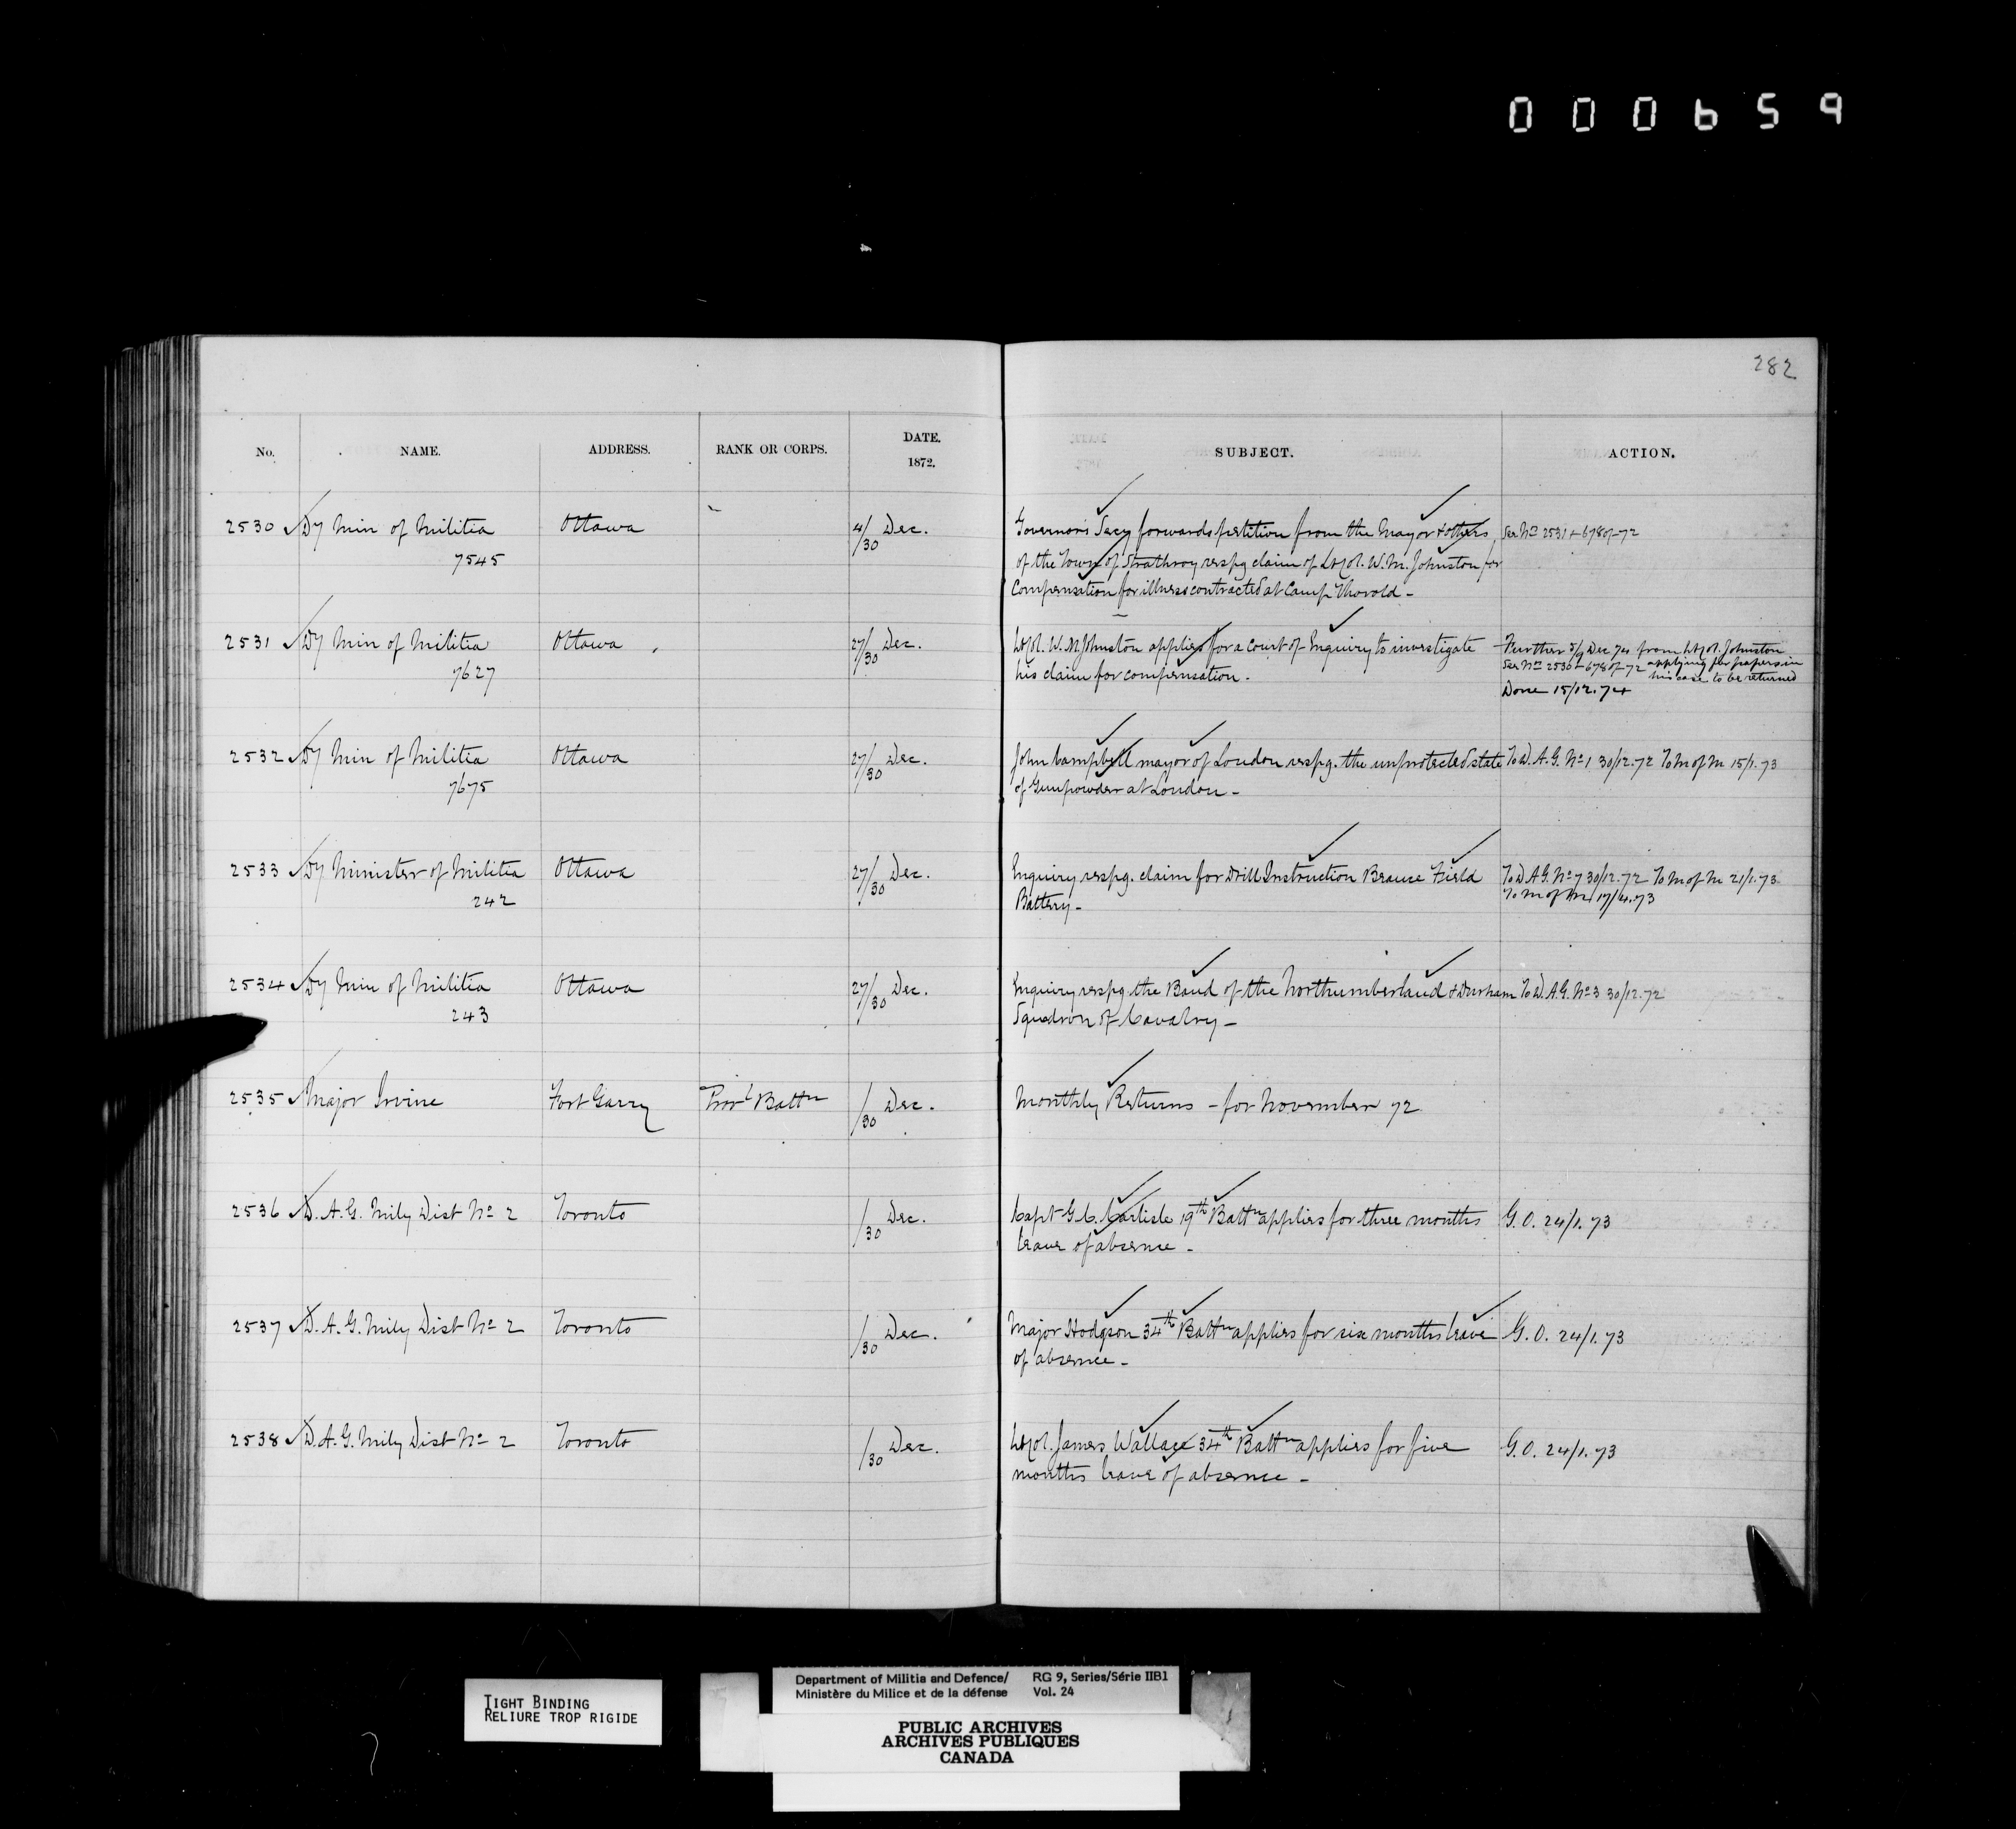 000659
282
No. NAME. ADDRESS. RANK OR CORPS. DATE. 1872. SUBJECT. ACTION.
2530 Dy Min of Militia Ottawa 4/30 Dec. Governor's Secy forwards petition from the Mayor & others See No 2531 & 678 of 72
7545 of the Town of Strathroy respg claim of Lt Col. W. M. Johnston for
Compensation for illness contracted at Camp Thorold -
2531 Dy Min of Militia Ottawa 27/30 Dec. Lt Col. W. M Johnston applies for a Court of Inquiry to investigate Further 5/9 Dec 74 from Lt Col. Johnston
7627 his claim for compensation. See No 2530 & 678 of 72 applying for papers in
his case to be returned
Done 15/12.74
2532 Dy Min of Militia Ottawa 27/30 Dec. John Campbell mayor of London respg. the unprotected state To D. A. G. No 1 30/12.72 To M of M 15/1.73
7675 of Gunpowder at London -
2533 Dy. Minister of Militia Ottawa 27/30 Dec. Inquiry respg. claim for Drill Instruction Beauce Field To D A G. No 7 30/12.72 To M of M 21/1.73
242 Battery - To M of M 17/4.73
2534 Dy Min of Militia Ottawa 27/30 Dec. Inquiry respg the Band of the Northumberland & Durham To D. A. G. No 3 30/12.72
243 Squadron of Cavalry -
2535 Major Irvine Fort Garry Provl Battn /30 Dec. Monthly Returns - for November 72
2536 D. A. G. Mily Dist No 2 Toronto /30 Dec. Capt G. C. Carlisle 19th Battn applies for three months G. O. 24/1.73
leave of absence -
2537 D. A. G. Mily Dist No 2 Toronto /30 Dec. Major Hodgson 34th Battn applies for six months leave G. O. 24/1.73
of absence -
2538 D. A. G. Mily Dist No 2 Toronto /30 Dec. Lt Col. James Wallace 34th Battn applies for five G. O. 24/1.73
months leave of absence -
TIGHT BINDING
RELIURE TROP RIGIDE
Department of Militia and Defence/ RG 9, Series/Série IIB1
Ministère du Milice et de la défense Vol. 24
PUBLIC ARCHIVES
ARCHIVES PUBLIQUES
CANADA